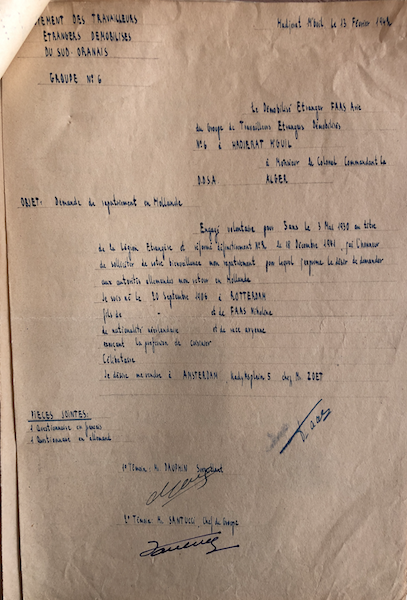 EMENT DES TRAVAILLEURS
ETRANGERS DEMOBILISES
DU SUD-ORANAIS
GROUPE N° 6
Hadjerat M'Guil le 13 Février
Le Démobilisé Etranger FAAS Arie
du Groupe de Travailleurs Etrangers Démobilisés
N°6 à HADJERAT M'GUIL
à Monsieur le Colonel Commandant la
D.D.S.A. ALGER
OBJET: Demande de rapatriement en Hollande
Engagé volontaire pour 5 ans le 3 Mai 1930 au titre
de la Légion Etrangère et réformé définitivement N°2 le 18 Décembre 1941 j'ai l'honneur
de solliciter de votre bienveillance mon rapatriement pour lequel j'exprime le désir de demander
aux autorités allemandes mon retour en Hollande
Je suis né le 20 Septembre 1906 à ROTTERDAM
fils de - et de FAAS
de nationalité néerlandaise et de race aryenne
exerçant la profession de
Célibataire
Je désire me rendre à AMSTERDAM 5 chez M. ZOET
PIECES JOINTES:
1 Questionnaire en français
1 Questionnaire en allemand
Faas
1er Témoin: M. DAUPHIN Surveillant
2e Témoin M. SANTUCCI Chef du Groupe